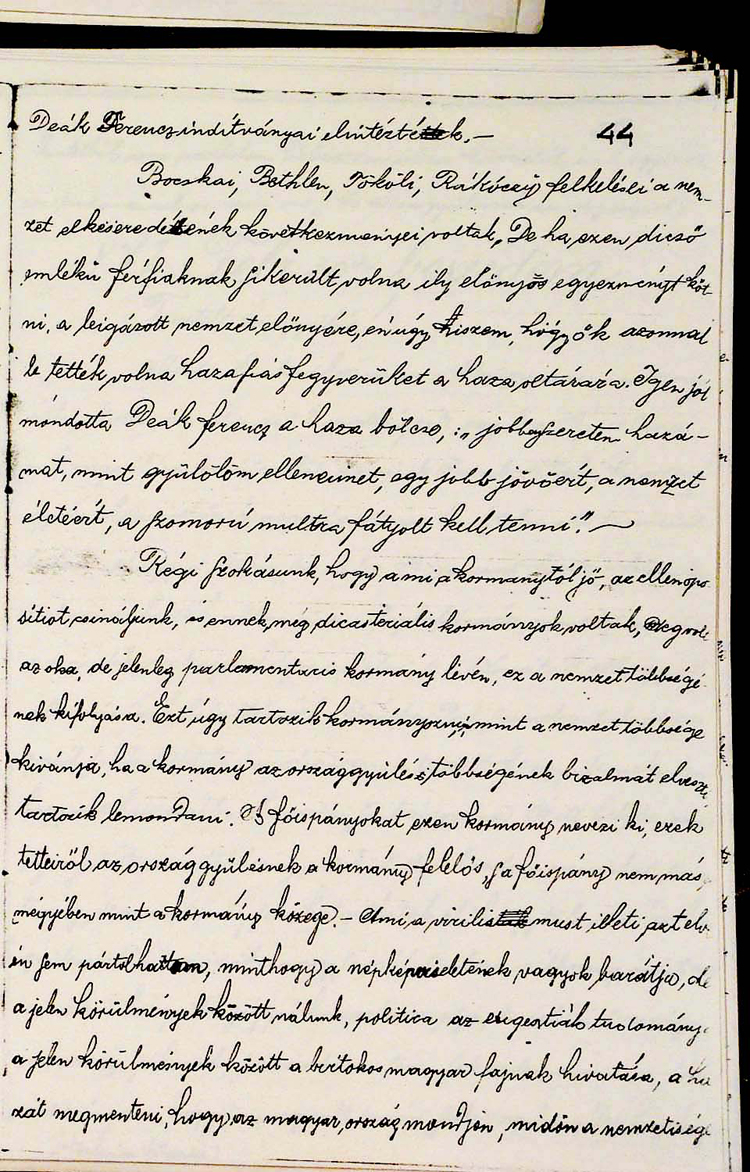 Deák Ferencz indítványai elintéztettek. — 44
Bocskai, Bethlen, Tököli, Rákóczy felkelései a nem-
zet elkeseredésének következményei voltak. De ha ezen dicső
emlékű férfiaknak sikerült volna ily előnyös egyezményt köt-
ni, a leigázott nemzet előnyére, én úgy hiszem, hogy ők azonnal
le tették volna hazafias fegyverüket a haza oltárára. Igen jól
mondotta Deák ferencz a haza bölcse, : „ jobban szeretem hazá-
mat, mint gyülölöm ellenemet, egy jobb jövőért, a nemzet
életéért, a szomorú multra fátyolt kell tenni." —
Régi szokásunk, hogy a mi a kormánytól jő, az ellen opo
sitiot csináljunk, és ennek, még dicasteriális kormányok voltak, meg volt
az oka, de jelenleg parlamentaris kormány lévén, ez a nemzet többségé-
nek kifolyása. Ezt úgy tartozik kormányozni, mint a nemzet többsége
kivánja, ha a kormány az országgyülés többségének bizalmát elveszti
tartozik lemondani. A főispányokat ezen kormány nevezi ki, ezek
tetteiről az országgyülésnek a kormány felelős, s a főispány nem más,
megyében mint a kormány közege. — Ami a virilismust illeti, azt elv
én sem pártolhatom, minthogy a népképviseletének vagyok barátja, de
a jelen körülmények között nálunk, politica az exigentiák tudománya
a jelen körülmények között a birtokos magyar fajnak hivatása, a ha
zát megmenteni, hogy az magyar ország maradjon, midőn a nemzetiségi